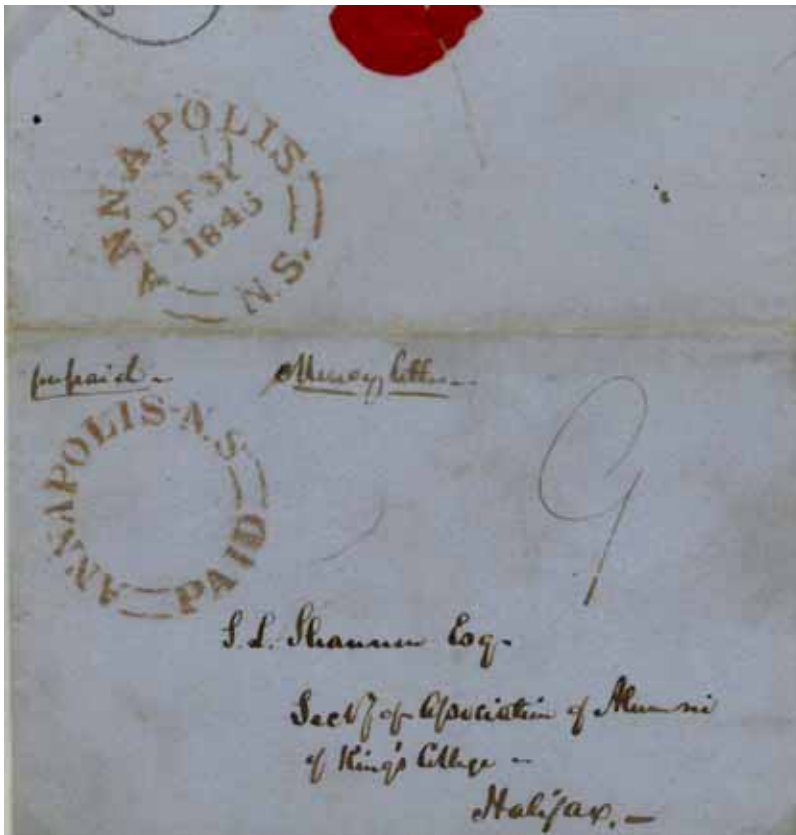 ANNAPOLIS
DE 31
1845
N.S.
prepaid - Money letter -
ANNAPOLIS-N.S.
PAID
9
S. L. Shannon Esq -
Secty of Association of Alumni
of King's College -
Halifax. -